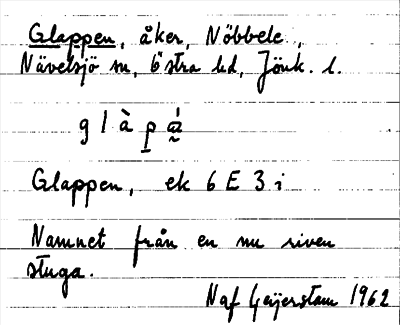 Glappen, åker, Nöbbele,
Nävelsjö sn, Östra hd, Jönk. l.
g l à p á̰
Glappen, ek 6 E 3 i
Namnet från en nu riven
stuga.
Naf Geijerstam 1962